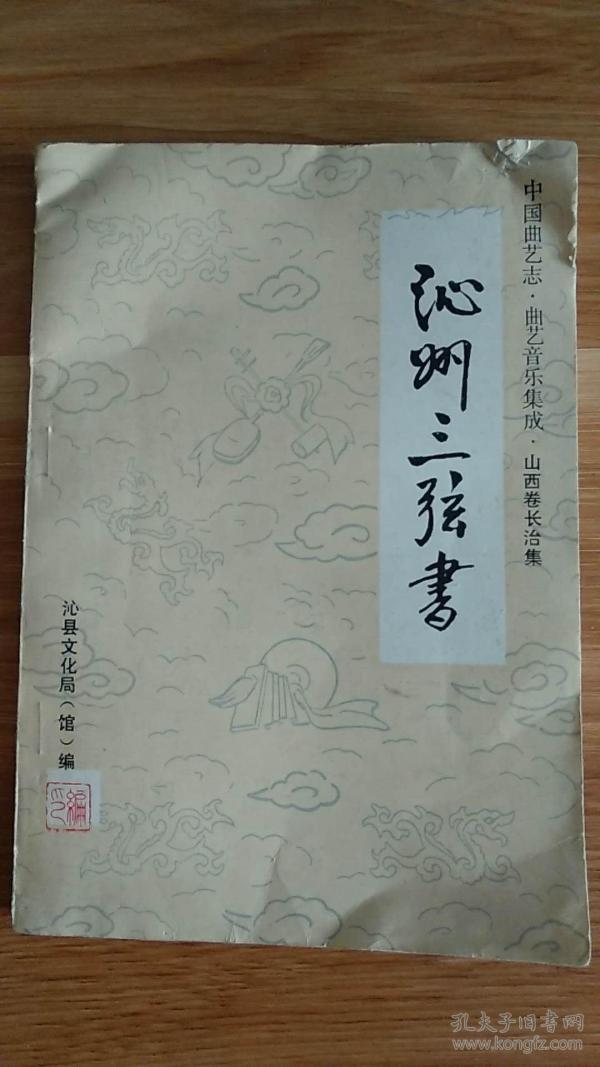 中国曲艺志·曲艺音乐集成·山西卷长治集
沁州三弦書
沁县文化局(馆)编
编印
孔夫子旧书网
www.kongfz.com